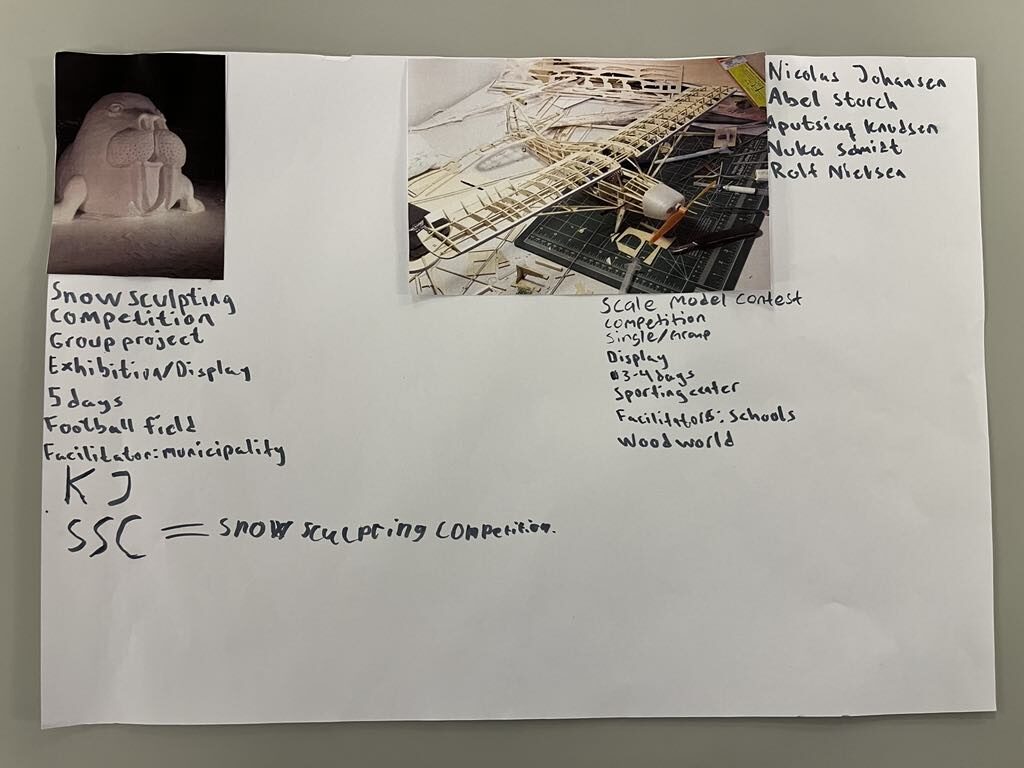 Nicolas Johansen
Abel Storch
Aputsiaq Knudsen
Nuka Smidt
Rolf Nielsen
Snow sculpting
competition
Group project
Exhibition/Display
5 days
Football field
Facilitator: municipality
KJ
SSC = snow sculpting competition.
Scale model contest
competition
Single/Group
Display
3-4 days
Sporting center
Facilitators: Schools
Wood world